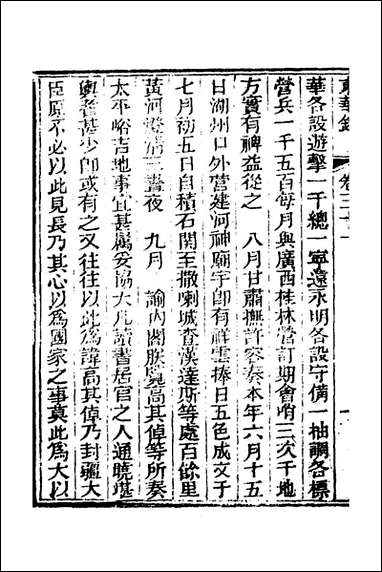 東華錄 卷三十一
華各設遊擊一千總一寧遠永明各設守備一抽調各標
營兵一千五百每月與廣西桂林營訂期會哨三次于地
方實有裨益從之　八月甘肅撫許容奏本年六月十五
日湖州口外營建河神廟宇卽有祥雲捧日五色成文于
七月初五日自積石關至撒喇城查漢達斯等處百餘里
黃河澄清三晝夜　九月　諭內閣朕覽高其倬等所奏
太平峪吉地事宜甚屬妥協大凡讀書居官之人通曉堪
輿者甚少卽或有之又往往以此爲諱高其倬乃封疆大
臣原不必以此見長乃其心以爲國家之事莫此爲大以